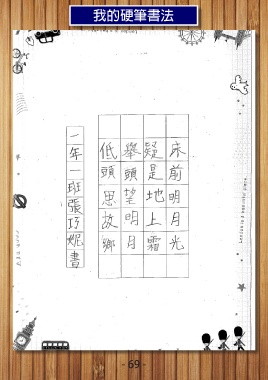 我的硬筆書法
床前明月光
疑是地上霜
舉頭望明月
低頭思故鄉
一年一班張巧妮書
- 69 -